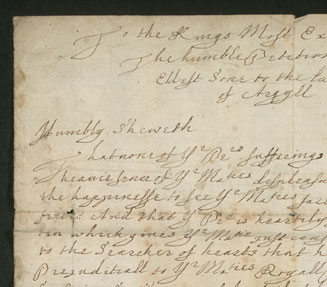 To the Kings Most Ex
The humble Petition
Eldest Sone to the La
of Argyll
Humbly Sheweth
That none of Yr Petrs sufferings
Yr Maties displeas
the happinesse to see Yr Maties face
And that Yr Petr is heartily
which gives Yr Matie just cause
to the Searcher of hearts that h
Prejudiciall to Yr Maties Royall